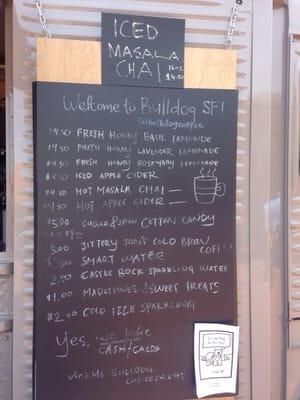 ICED
MASALA
CHAI 16oz
$4.50
Welcome to Bulldog SF!
@bulldogcoffee
$4.50 FRESH HONEY BASIL LEMONADE
$4.50 FRESH HONEY LAVENDER LEMONADE
$4.50 FRESH HONEY ROSEMARY LEMONADE
$4.50 ICED APPLE CIDER
$4.50 HOT MASALA CHAI
$4.50 HOT APPLE CIDER
$5.00 SUGAR & SPUN COTTON CANDY
5.00 JITTERY JOHN'S COLD BREW
COFFEE
SMART WATER
2.50 CASTLE ROCK SPARKLING WATER
$1.00 MADELEINES & SWEET TREATS
$2.00 COLD IZZE SPARKLING
yes, we take
CASH/CARDS
visit us BULLDOG